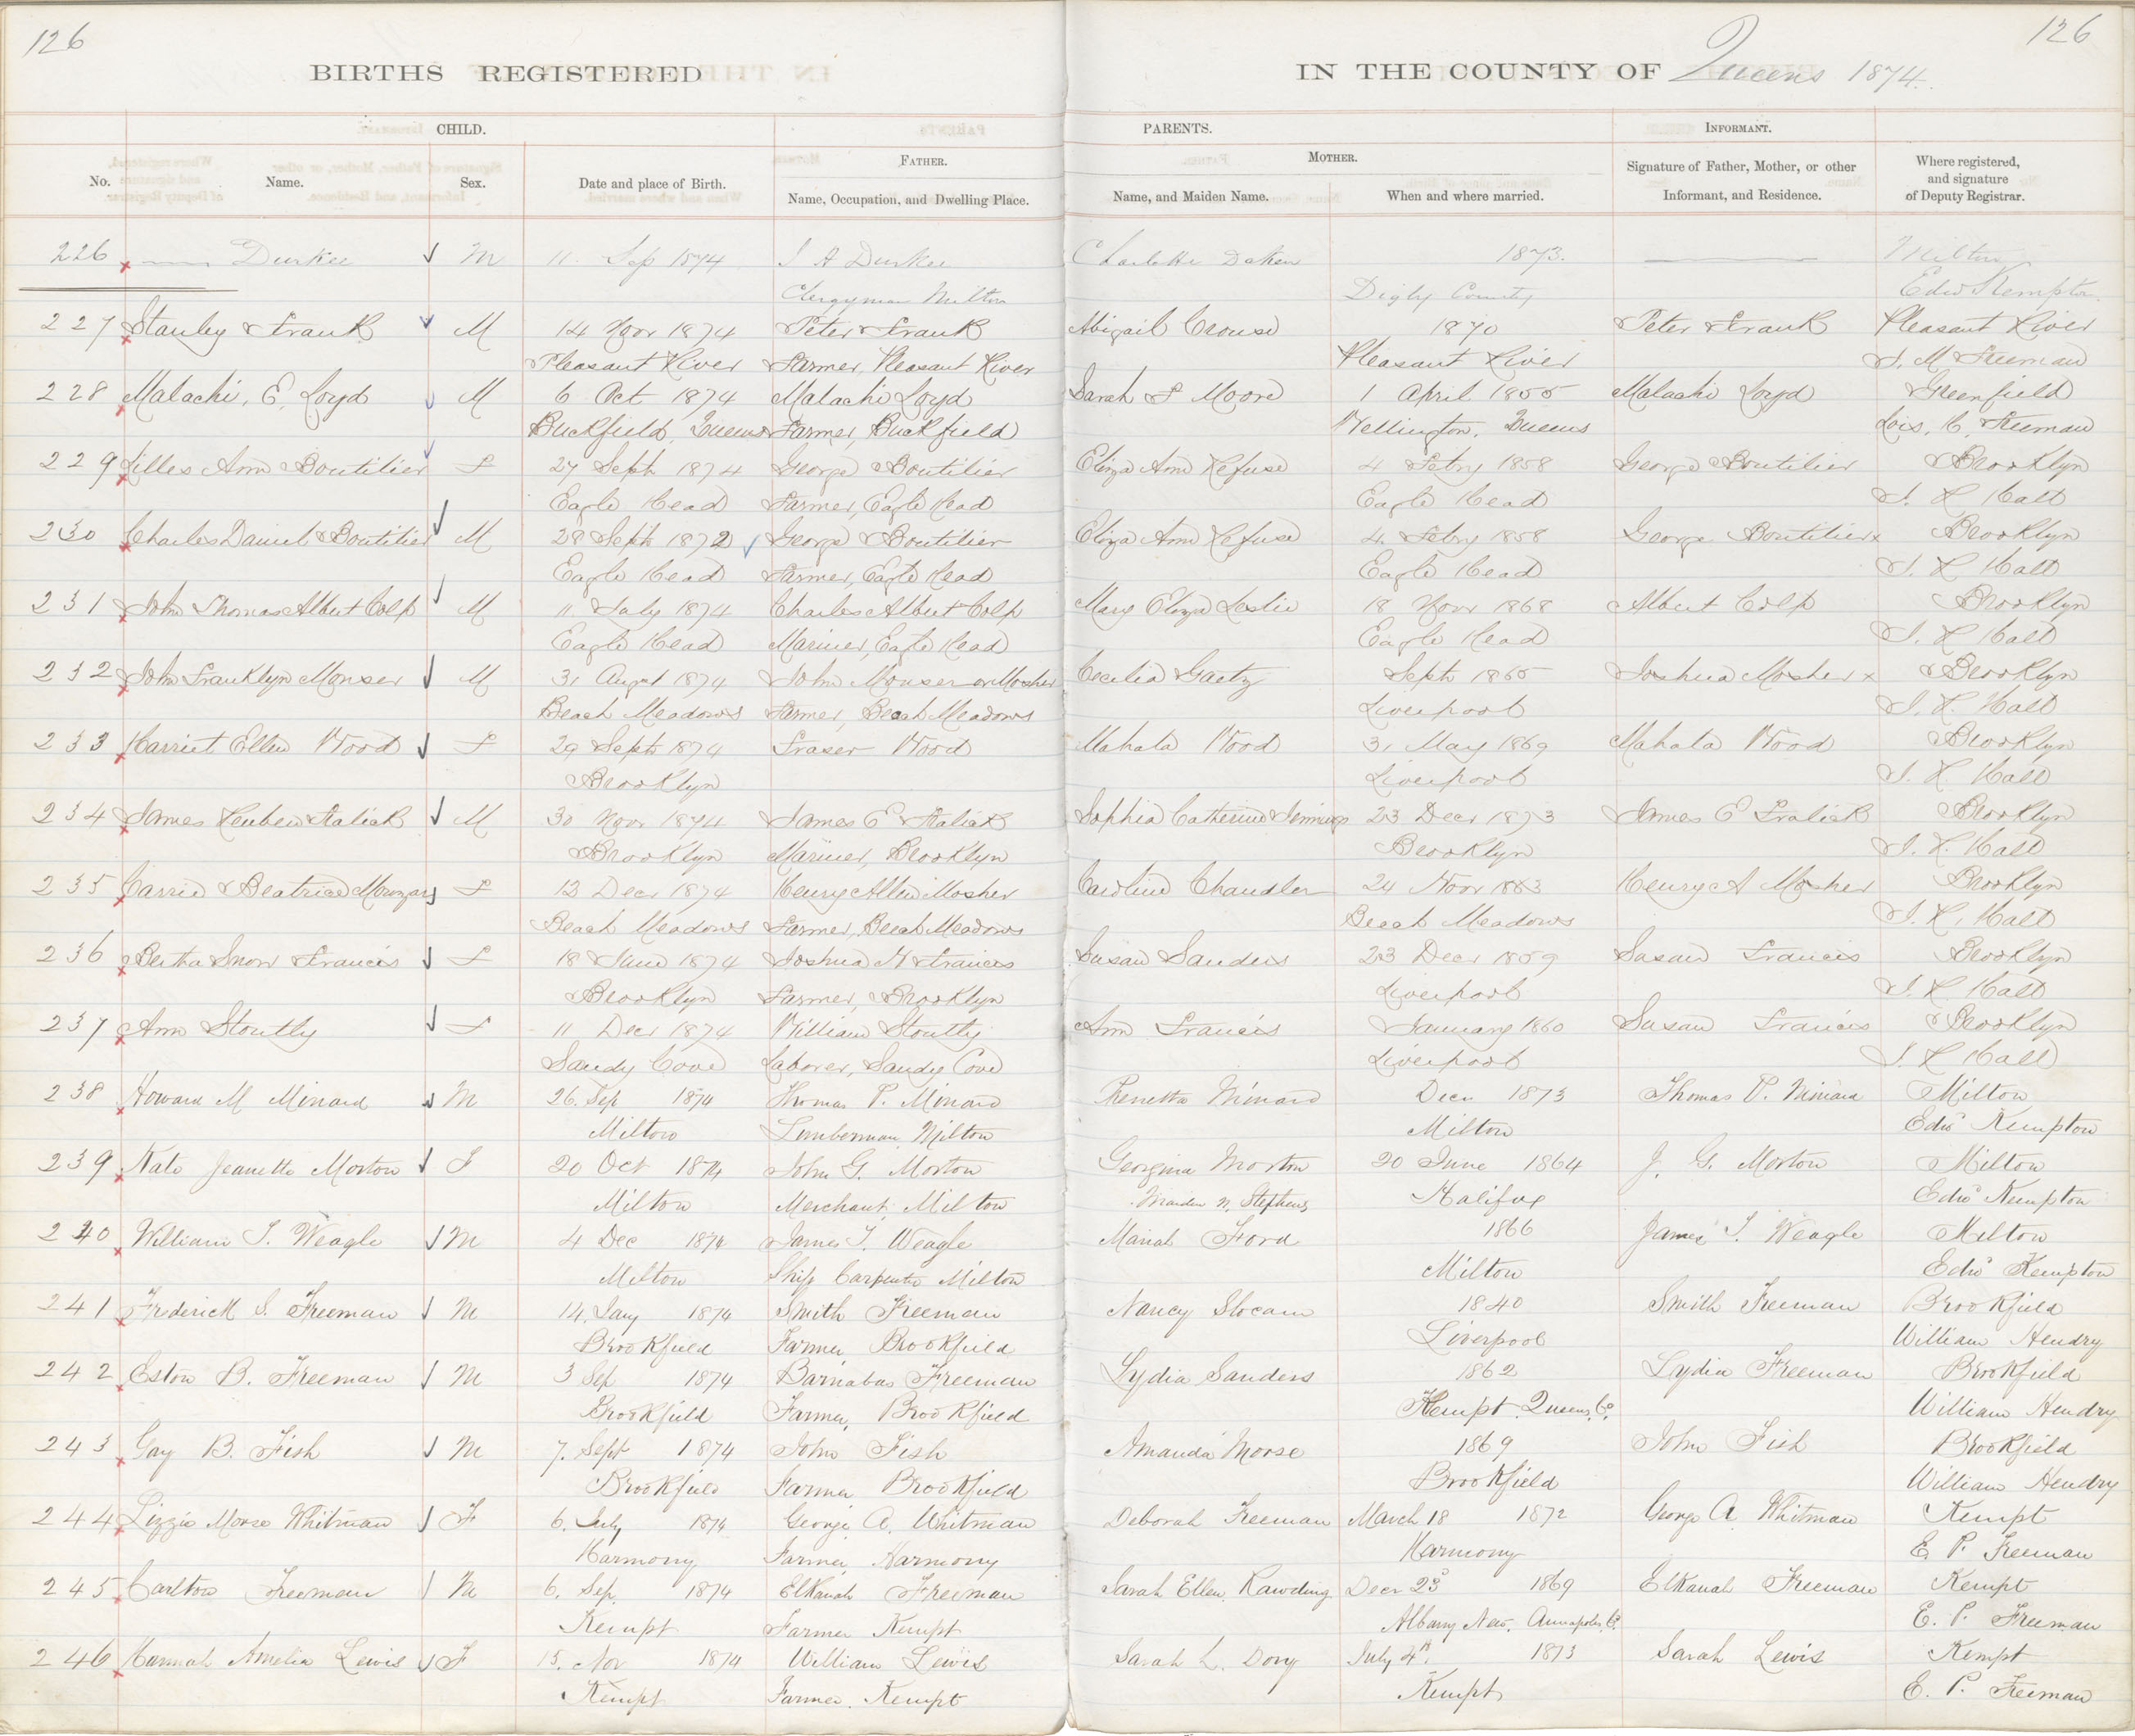 126
126
BIRTHS REGISTERED
IN THE COUNTY OF Queens 1874.
CHILD.
PARENTS.
INFORMANT.
FATHER.
MOTHER.
No.
Name.
Sex.
Date and place of Birth.
Name, Occupation, and Dwelling Place.
Name, and Maiden Name.
When and where married.
Signature of Father, Mother, or other
Informant, and Residence.
Where registered,
and signature
of Deputy Registrar.
226 Durkee M 11 Sep 1874 I A Durkee Charlotte Daken 1873. Milton
Clergyman Milton Digby County Edw Kempton
227 Stanley Frank M 14 Novr 1874 Peter Frank Abigail Crouse 1870 Peter Frank Pleasant River
Pleasant River Farmer, Pleasant River Pleasant River S. M Freeman
228 Malachi, E, Loyd M 6 Oct 1874 Malachi Loyd Sarah F Moore 1 April 1855 Malachi Loyd Greenfield
Buckfield, Queens Farmer, Buckfield Wellington, Queens Lois. C. Freeman
229 Lilles Ann Boutilier F 27 Sept 1874 George Boutilier Eliza Ann Refuse 4 Febry 1858 George Boutilier Brooklyn
Eagle Head Farmer, Eagle Head Eagle Head S. R Hall
230 Charles Daniel Boutilier M 28 Sept 1872 George Boutilier Eliza Ann Refuse 4 Febry 1858 George Boutilier x Brooklyn
Eagle Head Farmer, Eagle Head Eagle Head S. R Hall
231 John Thomas Albert Colp M 11 July 1874 Charles Albert Colp Mary Eliza Leslie 18 Novr 1868 Albert Colp Brooklyn
Eagle Head Mariner, Eagle Head Eagle Head S. R Hall
232 John Franklyn Monser M 31 August 1874 John Monser or Mosher Cecilia Gaetz Sept 1865 Joshua Mosher x Brooklyn
Beach Meadows Farmer, Beach Meadows Liverpool S. R. Hall
233 Harriet Ellen Wood F 29 Sept 1874 Fraser Wood Mahala Wood 31 May 1869 Mahala Wood Brooklyn
Brooklyn Liverpool S. R. Hall
234 James Reuben Fralick M 30 Novr 1874 James E Fralick Sophia Catherine Jennings 23 Decr 1873 James E Fralick Brooklyn
Brooklyn Mariner, Brooklyn Brooklyn S. R. Hall
235 Carrie Beatrice F 13 Decr 1874 Henry Allen Mosher Caroline Chandler 24 Novr 1863 Henry A Mosher Brooklyn
Beach Meadows Farmer, Beach Meadows Beach Meadows S. R. Hall
236 Bertha Snow Francis F 18 June 1874 Joshua N Francis Susan Sanders 23 Decr 1859 Susan Francis Brooklyn
Brooklyn Farmer, Brooklyn Liverpool S. R. Hall
237 Ann Stoutly F 11 Decr 1874 William Stoutly Ann Francis January 1860 Susan Francis Brooklyn
Sandy Cove Laborer, Sandy Cove Liverpool S. R Hall
238 Howard M Minard M 26. Sep 1874 Thomas P. Minard Renetta Minard Decr 1873 Thomas P. Minard Milton
Milton Lumberman, Milton Milton Edw Kempton
239 Kate Jeanette Morton F 20 Oct 1874 John G. Morton Georgina Morton 20 June 1864 J. G. Morton Milton
Milton Merchant, Milton Maiden n. Stephens Halifax Edw Kempton
240 William T. Weagle M 4 Dec 1874 James T. Weagle Mariah Ford 1866 James T. Weagle Milton
Milton Ship Carpenter Milton Milton Edw Kempton
241 Frederick S. Freeman M 14. Jany 1874 Smith Freeman Nancy Slocum 1840 Smith Freeman Brookfield
Brookfield Farmer, Brookfield Liverpool William Hendry
242 Eston B. Freeman M 3 Sep 1874 Barnabas Freeman Lydia Sanders 1862 Lydia Freeman Brookfield
Brookfield Farmer, Brookfield Kempt Queens Co. William Hendry
243 Gay B. Fish M 7. Sept 1874 John Fish Amanda Morse 1869 John Fish Brookfield
Brookfield Farmer Brookfield Brookfield William Hendry
244 Lizzie Morse Whitman F 6. July 1874 George A. Whitman Deborah Freeman March 18 1872 George A Whitman Kempt
Harmony Farmer, Harmony Harmony E. P. Freeman
245 Carlton Freeman M 6. Sep. 1874 Elkanah Freeman Sarah Ellen Rawding Decr 23d 1869 Elkanah Freeman Kempt
Kempt Farmer Kempt Albany New, Annapolis, Co. E. P. Freeman
246 Hannah Amelia Lewis F 15. Nov 1874 William Lewis Sarah L. Dory July 4th. 1873 Sarah Lewis Kempt
Kempt Farmer. Kempt Kempt E. P. Freeman